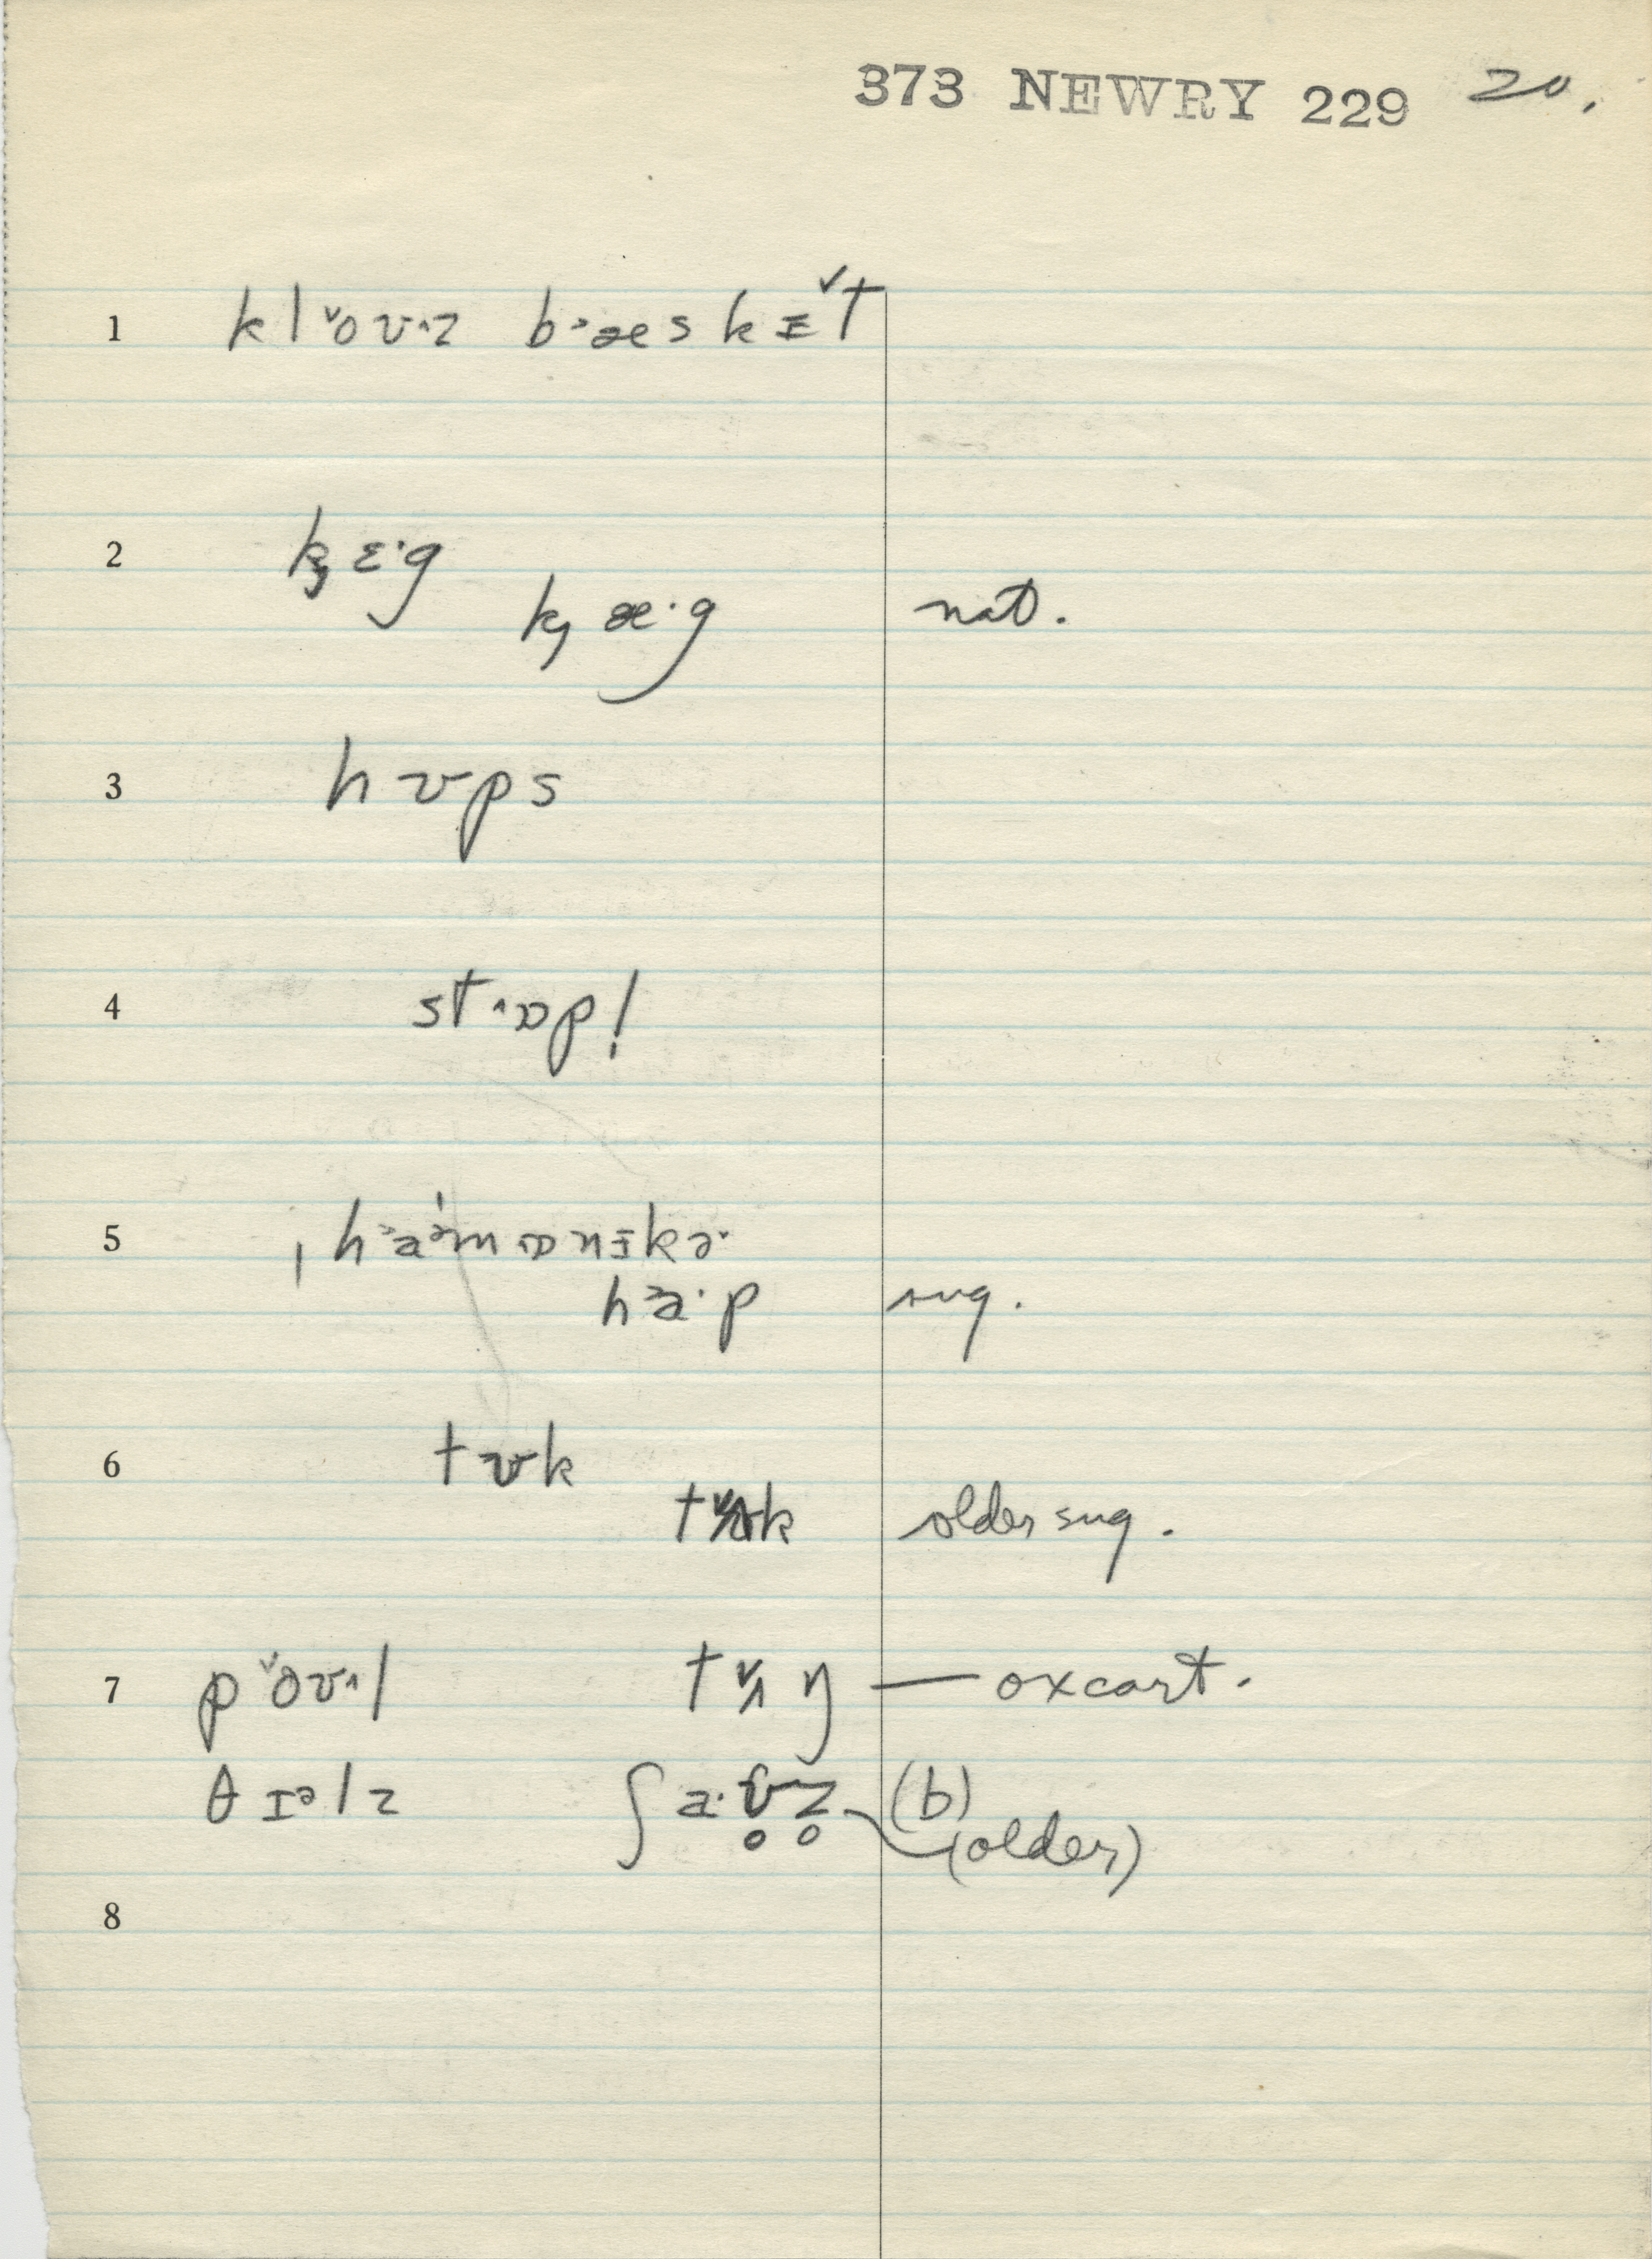 373 NEWRY 229 20.
1 klˇoʊ^z b˃æskɪˇt
2 k̡ɛ·g
k̡æ·g nat.
3 hʊps
4 st^ɒp!
5 ˌh˃aᵊˈmɒnɪkə·
h˃a·p sug.
6 tʊk
older sug.
7 pˇoʊ^l tˇʌŋ — oxcart.
θɪᵊlz ʃa·v̥z̥ (b)
(older)
8